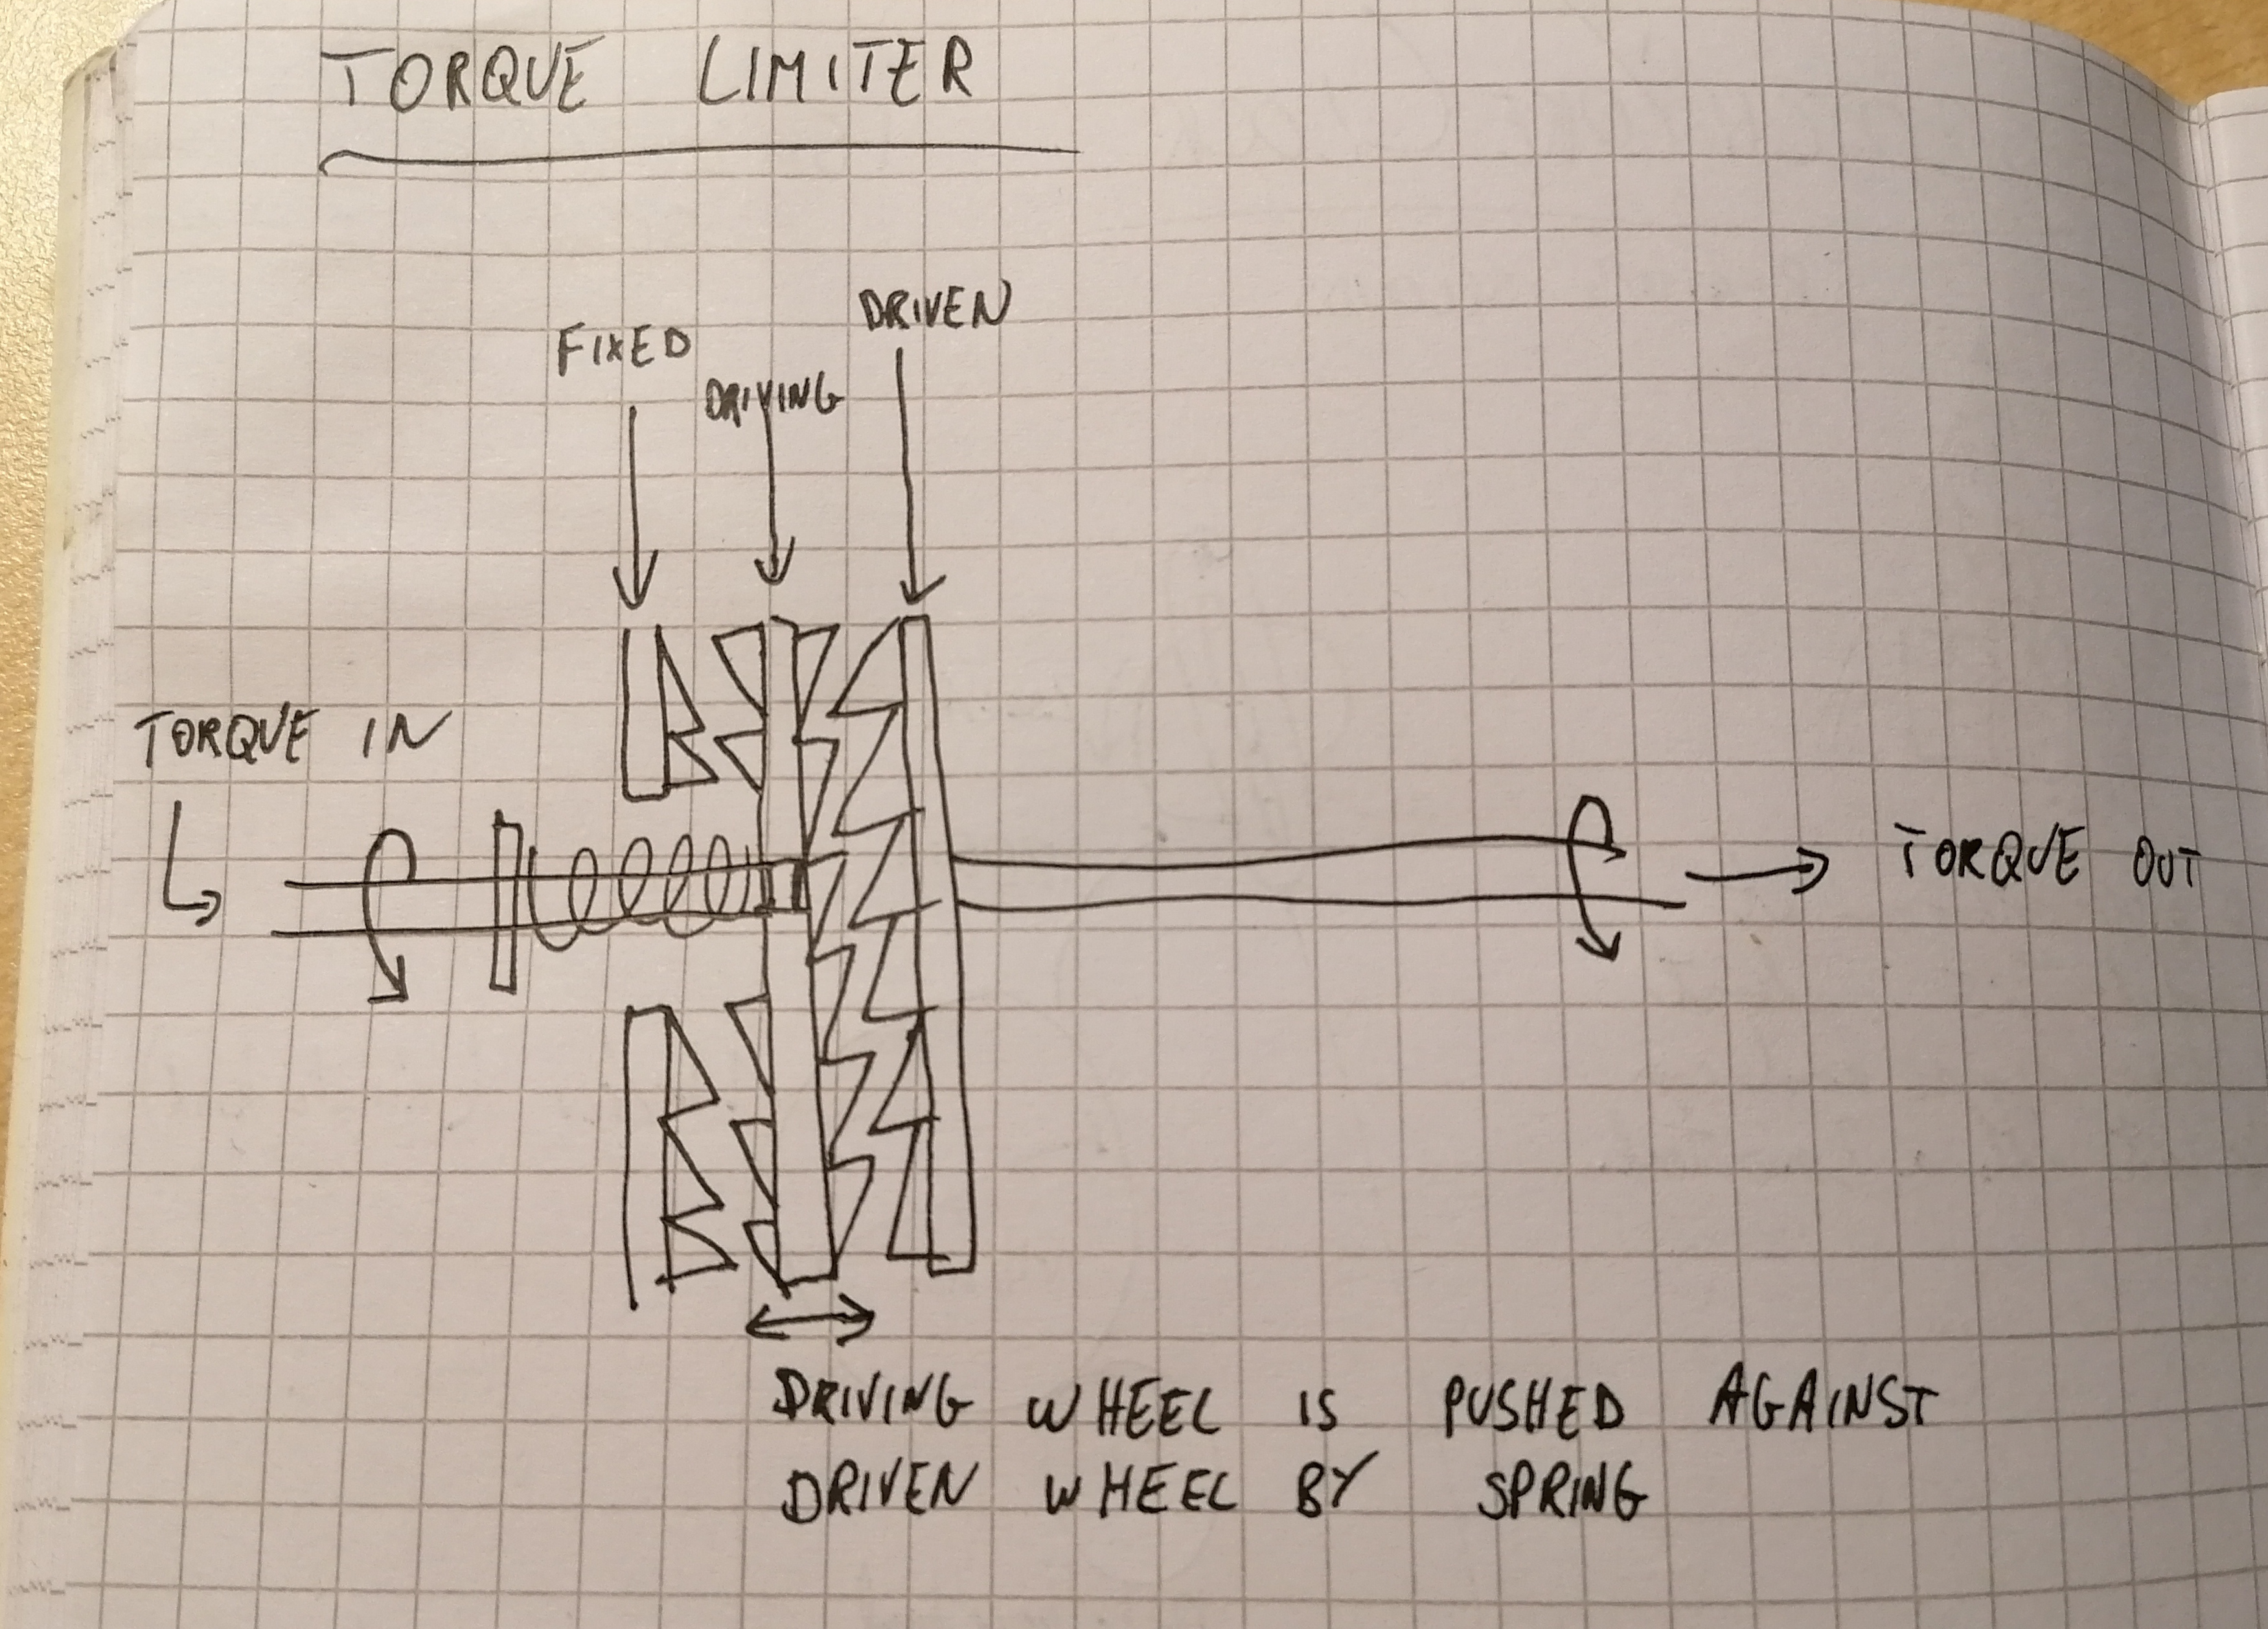 TORQUE LIMITER
DRIVEN
FIXED
DRIVING
TORQUE IN
TORQUE OUT
DRIVING WHEEL IS PUSHED AGAINST
DRIVEN WHEEL BY SPRING